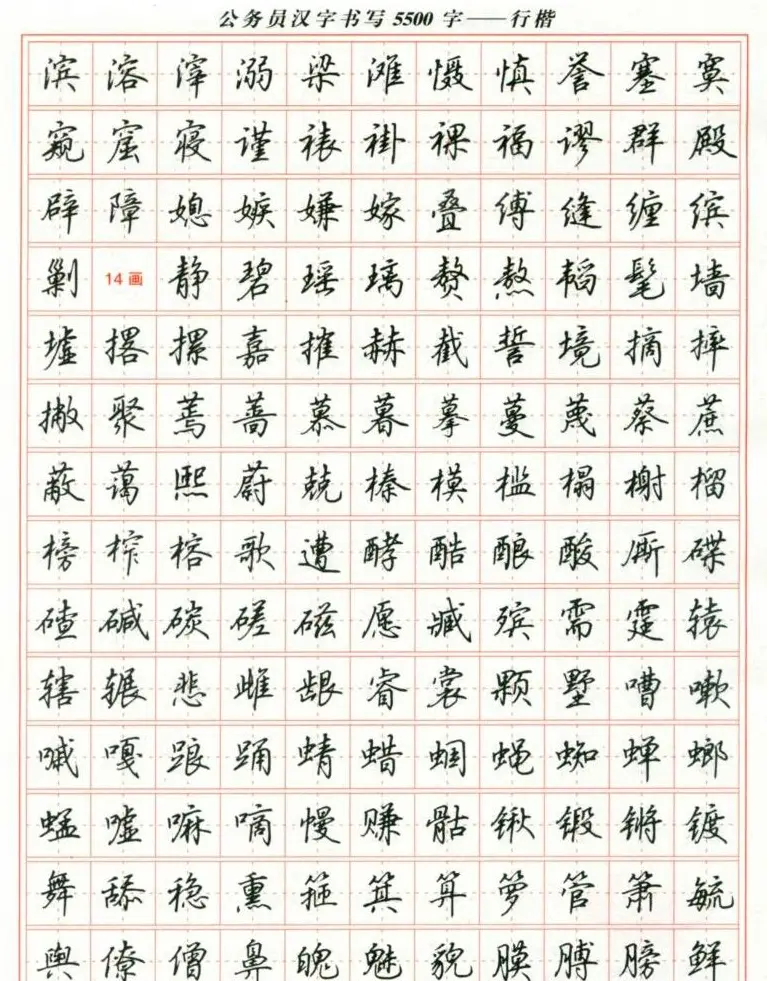 公务员汉字书写 5500 字——行楷
滨 溶 滓 溺 梁 滩 慑 慎 誉 塞 寞
窥 窟 寝 谨 裱 褂 裸 福 谬 群 殿
辟 障 媳 嫉 嫌 嫁 叠 缚 缝 缠 缤
剿 14 画 静 碧 瑶 璃 赘 熬 韬 髦 墙
墟 撂 摞 嘉 摧 赫 截 誓 境 摘 摔
撇 聚 蔫 蔷 慕 暮 摹 蔓 蔑 蔡 蔗
蔽 蔼 熙 蔚 兢 榛 模 槛 榻 榭 榴
榜 榨 榕 歌 遭 酵 酷 酿 酸 厮 碟
碴 碱 碳 磋 磁 愿 臧 殡 需 霆 辕
辖 辗 蜚 雌 龈 睿 裳 颗 墅 嘈 嗽
嘁 嘎 踉 踊 蜻 蜡 蝈 蝇 蜘 蝉 螂
蜢 嘘 嘛 嘀 幔 赚 骷 锹 锻 锵 镀
舞 舔 稳 熏 箍 箕 算 箩 管 箫 毓
舆 僚 僧 鼻 魄 魅 貌 膜 膊 膀 鲜